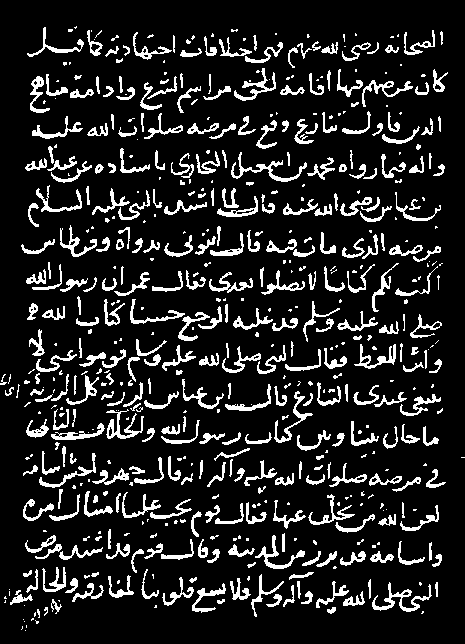 الصحابة رضى الله عنهم فهى اختلافات اجتهادية كما قيل
كان غرضهم فيها اقامة الحق مراسم الشرع وادامة مناهج
الدين فاول تنازع وقع فى مرضه صلوات الله عليه
واله فيما رواه محمد بن اسمعيل البخارى باسناده عن عبدالله
بن عباس رضى الله عنه قال لما اشتد بالنبى عليه السلام
مرضه الذى مات فيه قال ائتونى بدواة وقرطاس
اكتب لكم كتابا لا تضلوا بعدى فقال عمر ان رسول الله
صلى الله عليه وسلم قد غلبه الوجع حسبنا كتاب الله
وكثر اللغط فقال النبى صلى الله عليه وسلم قوموا عنى لا
ينبغى عندى التنازع قال ابن عباس الرزية كل الرزية
ما حال بيننا وبين كتاب رسول الله والخلاف الثانى
فى مرضه صلوات الله عليه وآله انه قال جهزوا جيش اسامة
لعن الله من تخلف عنها فقال قوم يجب علينا امتثال امره
واسامة قد برز من المدينة وقال قوم قد اشتد مرض
النبى صلى الله عليه وآله وسلم فلا يسع قلوبنا لمفارقته والحالة